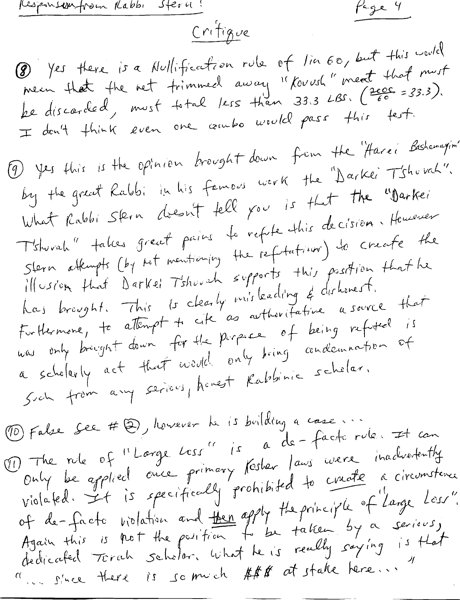 Response from Rabbi Stern! Page 4
Critique
(8) Yes there is a Nullification rule of 1 in 60, but this would
mean that the net trimmed away "Kovush" meat that must
be discarded, must total less than 33.3 LBS. (2000/60 = 33.3).
I don't think even one combo would pass this test.
(9) Yes this is the opinion brought down from the "Harei Beshomayim"
by the great Rabbi in his famous work the "Darkei Tshuvah".
What Rabbi Stern doesn't tell you is that the "Darkei
Tshuvah" takes great pains to refute this decision. However
Stern attempts (by not mentioning the refutation) to create the
illusion that Darkei Tshuvah supports this position that he
has brought. This is clearly misleading & dishonest.
Furthermore, to attempt to cite as authoritative a source that
was only brought down for the purpose of being refuted is
a scholarly act that would only bring condemnation of
such from any serious, honest Rabbinic scholar.
(10) False see # (2), however he is building a case...
(11) The rule of "Large Loss" is a de-facto rule. It can
only be applied once primary Kosher laws were inadvertently
violated. It is specifically prohibited to create a circumstance
of de-facto violation and then apply the principle of "Large Loss".
Again this is not the position to be taken by a serious,
dedicated Torah scholar. What he is really saying is that
"... since there is so much $$$ at stake here..."